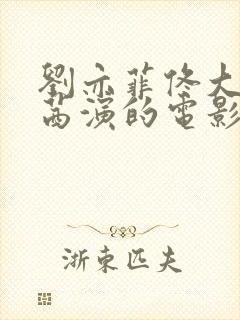 劉亦菲佟大
茜演的電影
浙東匹夫